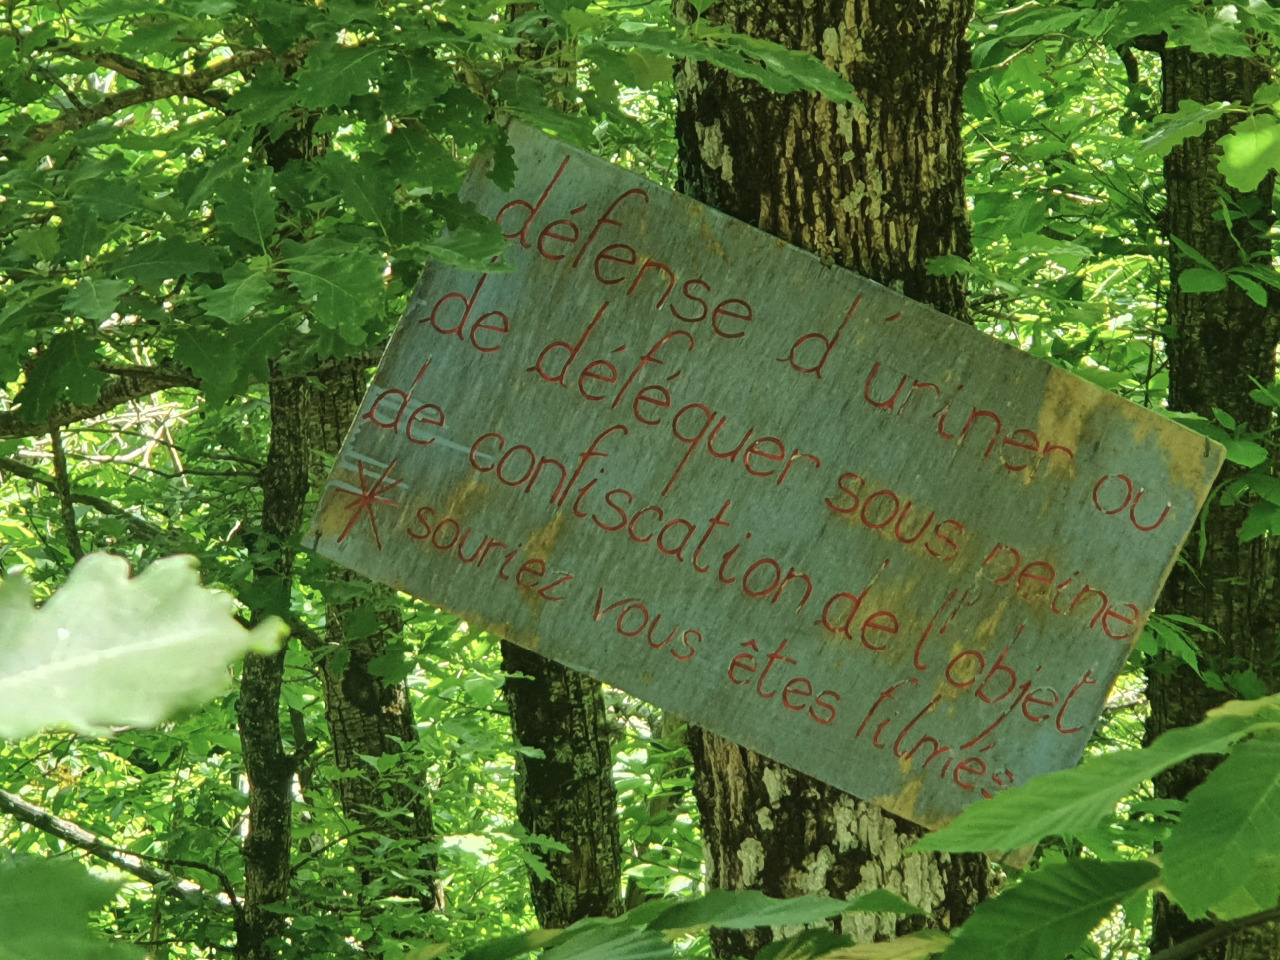 défense d'uriner ou
de déféquer sous peine
de confiscation de l'objet
* souriez vous êtes filmés